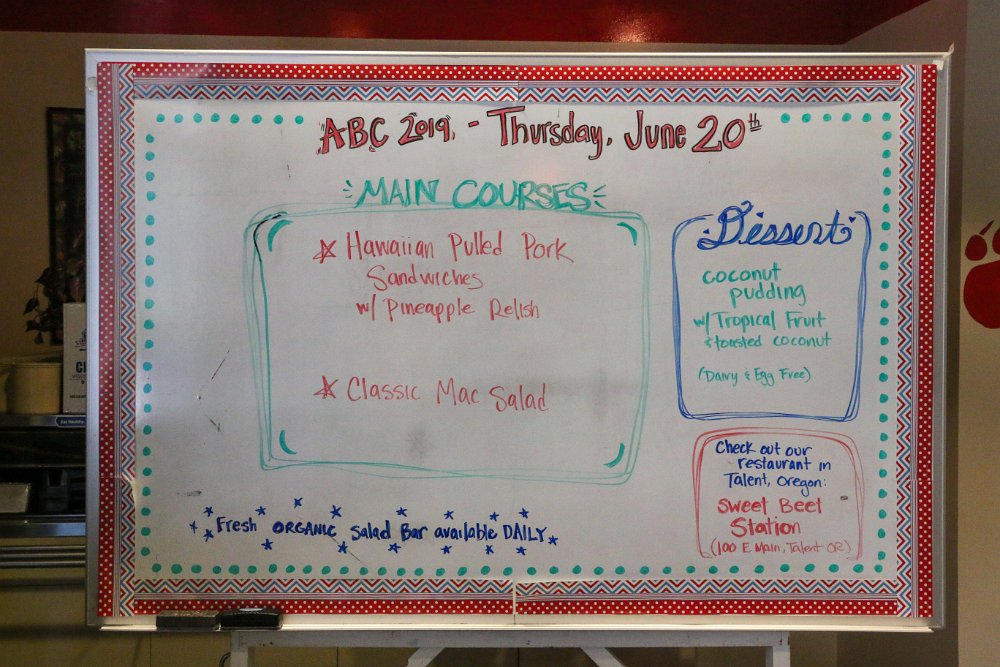 ABC 2019 - Thursday, June 20th
MAIN COURSES
Hawaiian Pulled Pork
Sandwiches
w/ Pineapple Relish
Classic Mac Salad
Dessert
coconut
pudding
w/ Tropical Fruit
& toasted coconut
(Dairy & Egg Free)
Check out our
restaurant in
Talent, Oregon:
Sweet Beet
Station
(100 E Main, Talent OR)
Fresh ORGANIC Salad Bar available DAILY